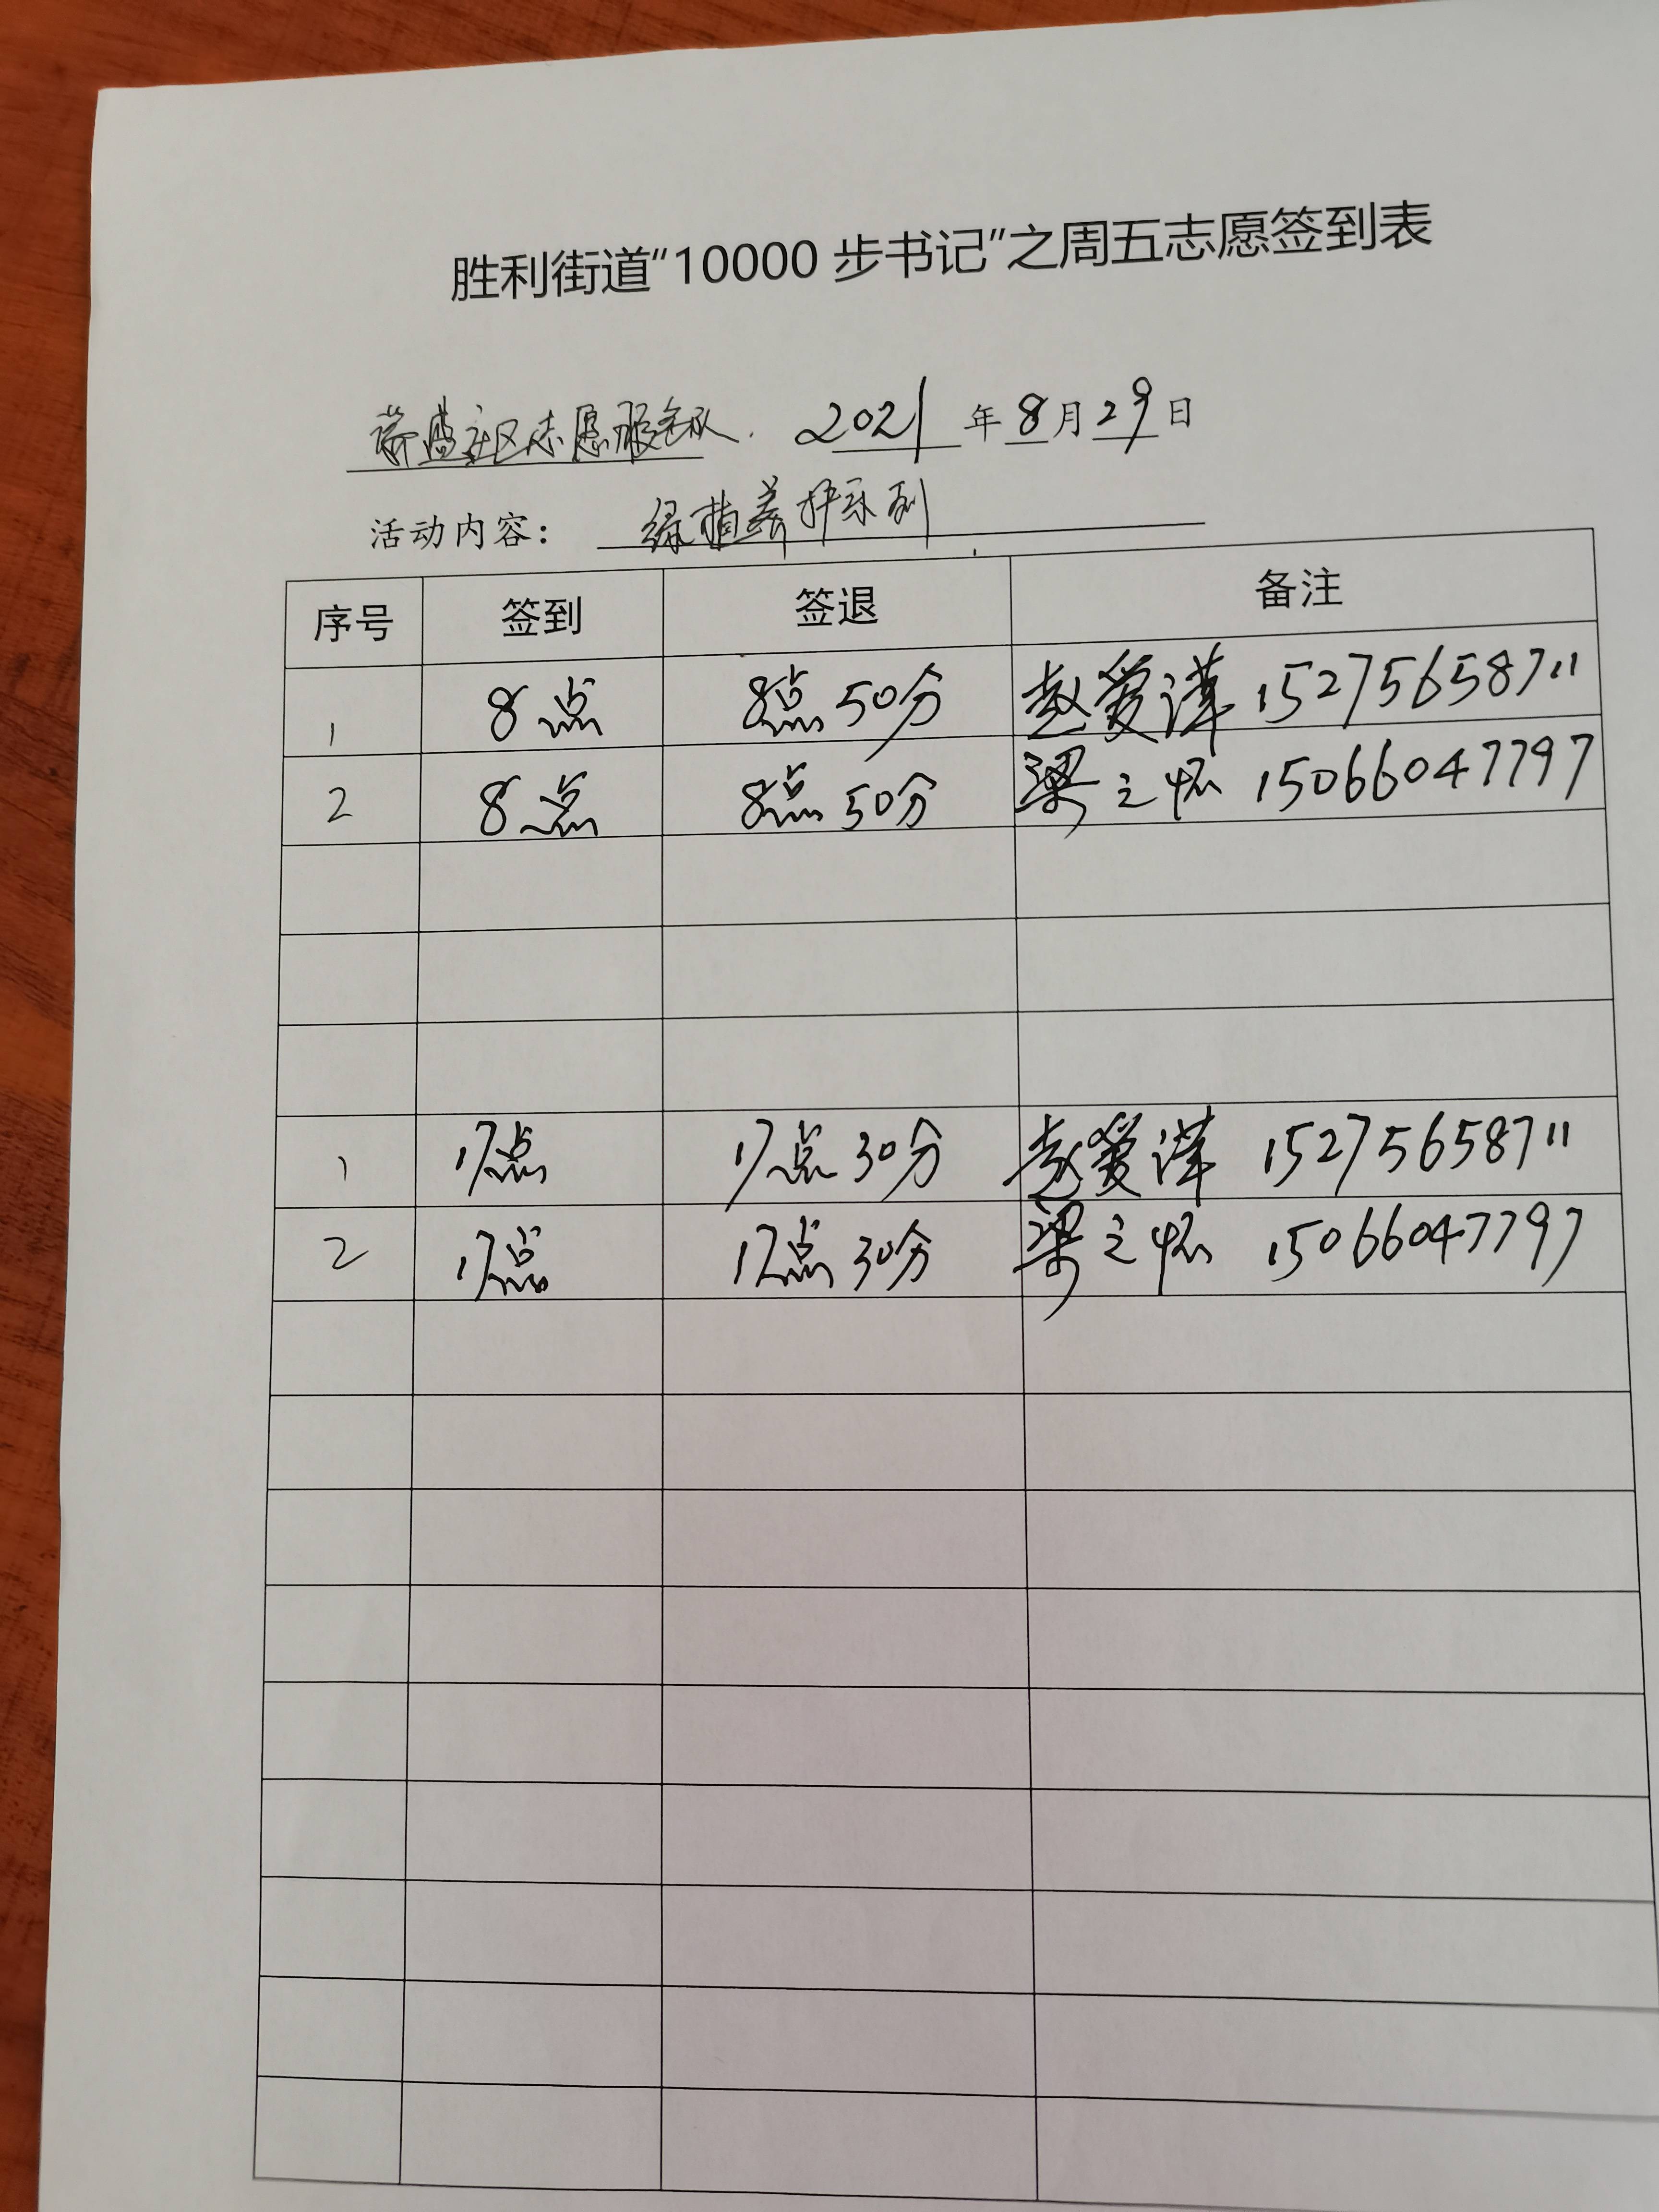 胜利街道“10000步书记”之周五志愿签到表
社区志愿服务队. 2021年8月29日
活动内容： 绿植养护系列
序号 签到 签退 备注
1 8点 8点50分 赵爱萍 15275658711
2 8点 8点50分 梁之怀 15066047797
1 17点 17点30分 赵爱萍 15275658711
2 17点 17点30分 梁之怀 15066047797